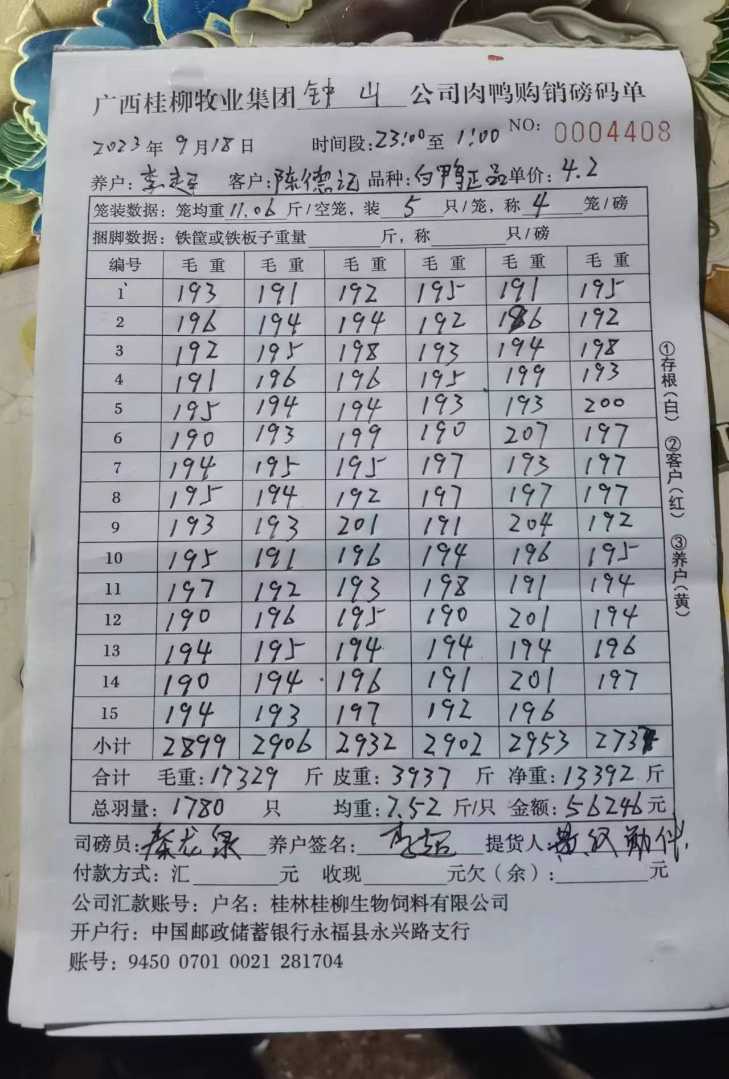 广西桂柳牧业集团 钟山 公司肉鸭购销磅码单
2023年9月18日 时间段:23:00至1:00 NO: 0004408
养户:李超 客户:陈德记 品种:白鸭正品 单价:4.2
笼装数据:笼均重11.06斤/空笼,装5只/笼,称4笼/磅
捆脚数据:铁筐或铁板子重量 斤,称 只/磅
编号 毛重 毛重 毛重 毛重 毛重 毛重
1 193 191 192 195 191 195
2 196 194 194 192 186 192
3 192 195 198 193 194 198
4 191 196 196 195 199 193
5 195 194 194 193 193 200
6 190 193 199 190 207 197
7 194 195 195 197 193 197
8 195 194 192 197 197 197
9 193 193 201 191 204 192
10 195 191 196 194 196 195
11 197 192 193 198 191 194
12 190 196 195 190 201 194
13 194 195 194 194 194 196
14 190 194 196 191 201 197
15 194 193 197 192 196
小计 2899 2906 2932 2902 2953 2737
合计 毛重:17329斤 皮重:3937斤 净重:13392斤
总羽量:1780只 均重:7.52斤/只 金额:56246元
司磅员:秦龙泉 养户签名:李超 提货人:
付款方式:汇 元 收现 元欠(余): 元
公司汇款账号:户名:桂林桂柳生物饲料有限公司
开户行:中国邮政储蓄银行永福县永兴路支行
账号:9450 0701 0021 281704
①存根(白) ②客户(红) ③养户(黄)